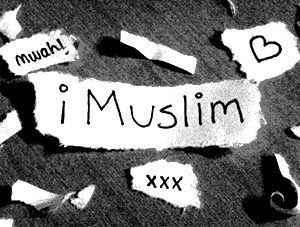 mwah!
i Muslim
xxx